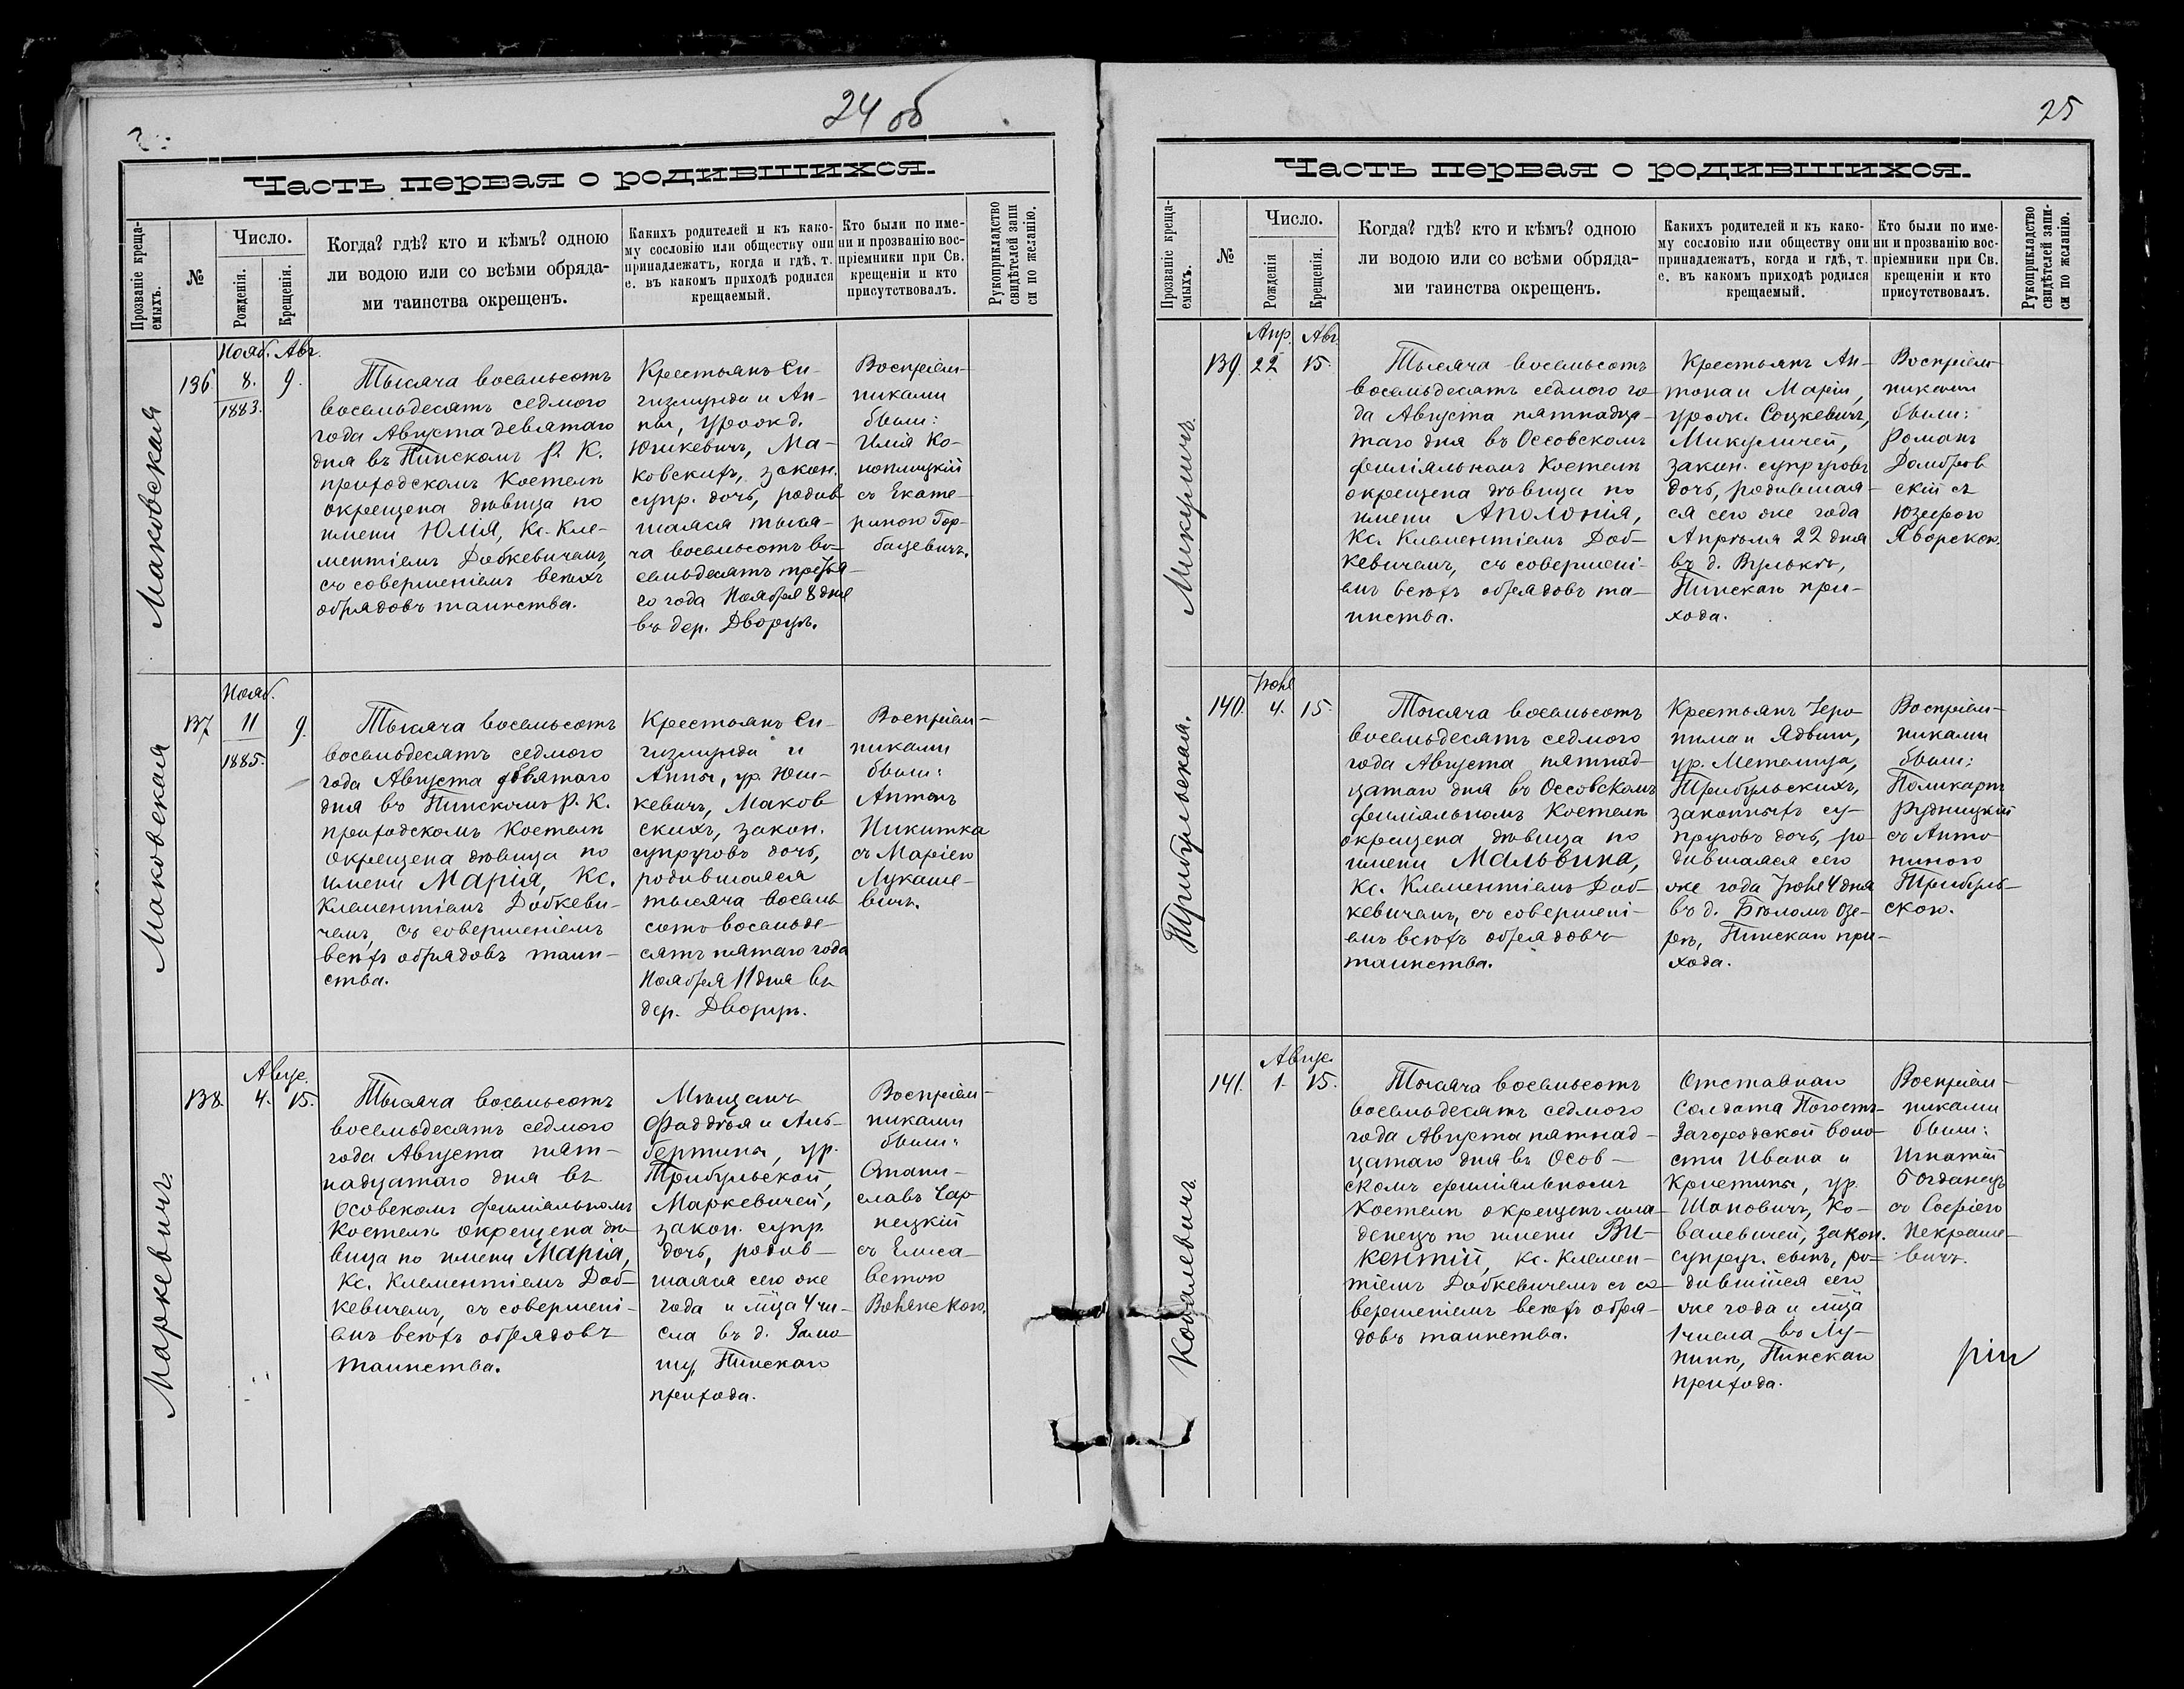 24 об
Часть первая о родившихся.
Прозваніе креща-
емыхъ.
№
Число.
Рожденія.
Крещенія.
Когда? гдѣ? кто и кѣмъ? одною
ли водою или со всѣми обряда-
ми таинства окрещенъ.
Какихъ родителей и къ како-
му сословію или обществу они
принадлежатъ, когда и гдѣ, т.
е. въ какомъ приходѣ родился
крещаемый.
Кто были по име-
ни и прозванію вос-
пріемники при Св.
крещеніи и кто
присутствовалъ.
Рукоприкладство
свидѣтелей запи
си по желанію.
Маковская
136
Нояб. Авг.
8. 9.
1883.
Тысяча восемьсотъ
восемьдесятъ седмого
года Августа девятаго
дня въ Пинскомъ Р. К.
приходскомъ Костелѣ
окрещена дѣвица по
имени Юлія, Кс. Кле-
ментіемъ Добкевичемъ,
съ совершеніемъ всѣхъ
обрядовъ таинства.
Крестьянъ Си-
гизмунда и Ан-
ны, урожд.
Юшкевичъ, Ма-
ковскихъ, закон.
супр. дочь, родив
шаяся тыся-
ча восемьсотъ во-
семьдесятъ третья-
го года Ноября 8 дня
въ дер. Дворцѣ.
Воспріем-
никами
были:
Илія Ко-
ноплицкій
съ Екате-
риною Гор-
бацевичъ.
Маковская
137
Нояб.
11 9.
1885.
Тысяча восемьсотъ
восемьдесятъ седмого
года Августа девятаго
дня въ Пинскомъ Р. К.
приходскомъ Костелѣ
окрещена дѣвица по
имени Марія, Кс.
Клементіемъ Добкеви-
чемъ, съ совершеніемъ
всѣхъ обрядовъ таин-
ства.
Крестьянъ Си-
гизмунда и
Анны, ур. Юш-
кевичъ, Маков
скихъ, закон.
супруговъ дочь,
родившаяся
тысяча восемь
сотъ восемьде-
сятъ пятаго года
Ноября 11 дня въ
дер. Дворцѣ.
Воспріем-
никами
были:
Антонъ
Никитка
съ Маріею
Лукаше-
вичъ.
Маркевичъ.
138.
Авгус.
4. 15.
Тысяча восемьсотъ
восемьдесятъ седмого
года Августа пят-
надцатаго дня въ
Осовскомъ филіальномъ
Костелѣ окрещена дѣ-
вица по имени Марія,
Кс. Клементіемъ Доб-
кевичемъ, съ совершені-
емъ всѣхъ обрядовъ
таинства.
Мѣщанъ
Фаддѣя и Аль-
бертины, ур.
Трибульской,
Маркевичей,
закон. супр.
дочь, родив-
шаяся сего же
года и м-ца 4 чи-
сла въ д. Замо-
шу, Пинскаго
прихода.
Воспріем-
никами
были:
Стани-
славъ Чар-
нецкій
съ Елиса-
ветою
25
Часть первая о родившихся.
Прозваніе креща-
емыхъ.
№
Число.
Рожденія
Крещенія.
Когда? гдѣ? кто и кѣмъ? одною
ли водою или со всѣми обряда-
ми таинства окрещенъ.
Какихъ родителей и къ како-
му сословію или обществу они
принадлежатъ, когда и гдѣ, т.
е. въ какомъ приходѣ родился
крещаемый.
Кто были по име-
ни и прозванію вос-
пріемники при Св.
крещеніи и кто
присутствовалъ.
Рукоприкладство
свидѣтелей запи-
си по желанію.
Микуличъ.
139.
Апр. Авг.
22 15.
Тысяча восемьсотъ
восемьдесятъ седмого го-
да Августа пятнадца-
таго дня въ Оссовскомъ
филіальномъ Костелѣ
окрещена дѣвица по
имени Аполонія,
Кс. Клементіемъ Доб-
кевичемъ, съ совершені-
емъ всѣхъ обрядовъ та-
инства.
Крестьянъ Ан-
тона и Маріи,
урожд. Соцкевичъ,
Микуличей,
закон. супруговъ
дочь, родившая-
ся сего же года
Апрѣля 22 дня
въ д. Вулькѣ,
Пинскаго при-
хода.
Воспріем-
никами
были:
Романъ
Домбров
скій съ
Юзефою
Яворскою.
Трибульская.
140.
Іюня
4. 15.
Тысяча восемьсотъ
восемьдесятъ седмого
года Августа пятнад-
цатаго дня въ Оссовскомъ
филіальномъ Костелѣ
окрещена дѣвица по
имени Мальвина,
Кс. Клементіемъ Доб-
кевичемъ, съ совершені-
емъ всѣхъ обрядовъ
таинства.
Крестьянъ Іеро-
нима и Ядвиги,
ур. Метелица,
Трибульскихъ,
законныхъ су-
пруговъ дочь, ро-
дившаяся сего
же года Іюня 4 дня
въ д. Бѣломъ Озе-
рѣ, Пинскаго при-
хода.
Воспріем-
никами
были:
Поликарпъ
Рудницкій
съ Анто-
ниною
Трибуль-
скою.
Ковалевичъ.
141.
Авгус.
1. 15.
Тысяча восемьсотъ
восемьдесятъ седмого
года Августа пятнад-
цатаго дня въ Осов-
скомъ филіальномъ
Костелѣ окрещенъ мла-
денецъ по имени Ви-
кентій, Кс. Клемен-
тіемъ Добкевичемъ съ со-
вершеніемъ всѣхъ обря-
довъ таинства.
Отставнаго
Солдата Погостъ-
Загородской воло-
сти Ивана и
Кристины, ур.
Шановичъ, Ко-
валевичей, закон.
супруг. сынъ, ро-
дившійся сего
же года и м-ца
1 числа въ Лу-
нинѣ, Пинскаго
прихода.
Воспріем-
никами
были:
Игнатій
Богданецъ
съ Софіею
Некраше-
вичъ.